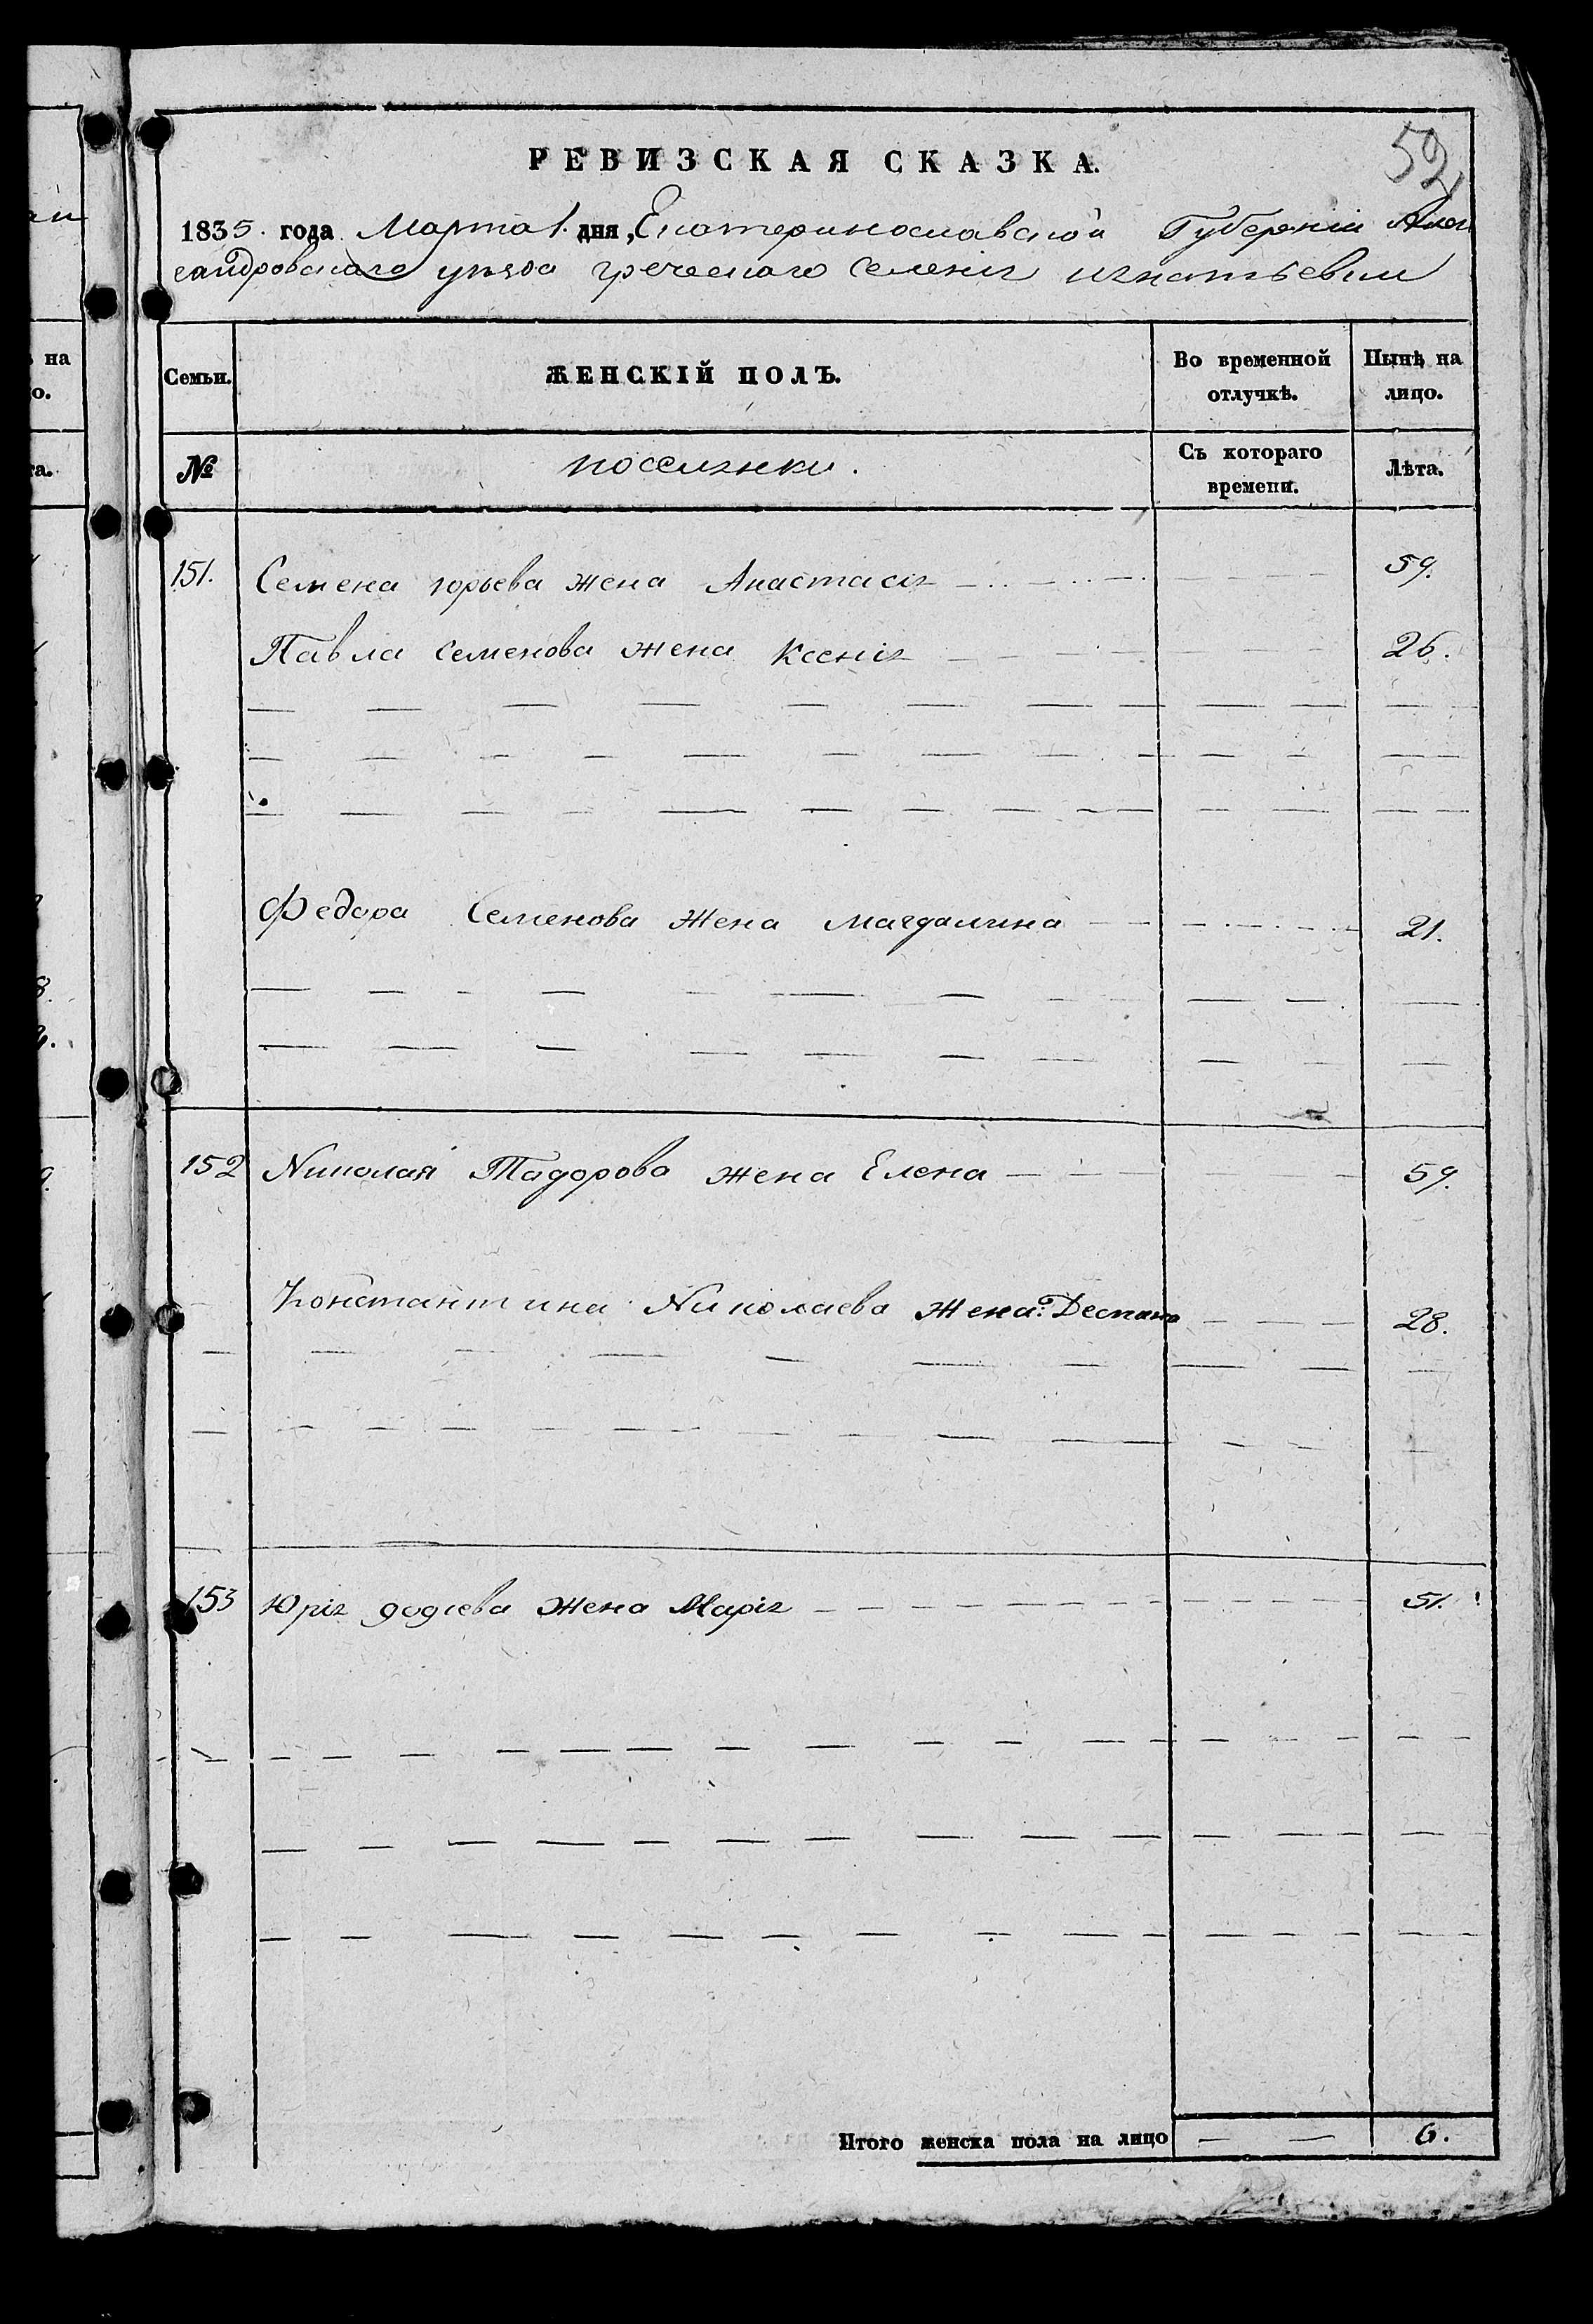 52
РЕВИЗСКАЯ СКАЗКА.
1835. года Марта 1. дня, Екатеринославской Губерніи Алек
сандровскаго уѣзда греческаго селенія игнатьевки
Семьи. ЖЕНСКІЙ ПОЛЪ. Во временной отлучкѣ. Нынѣ на лицо.
№ поселянки. Съ котораго времени. Лѣта.
151. Семена юрьева жена Анастасія 59.
Павла семенова жена Ксенія 26.
Федора Семенова жена магдалина 21.
152 Николая Тадорова жена Елена 59.
Константина Николаева жена Деспина 28.
153 Юрія жена Марія 51.
Итого женска пола на лицо 6.